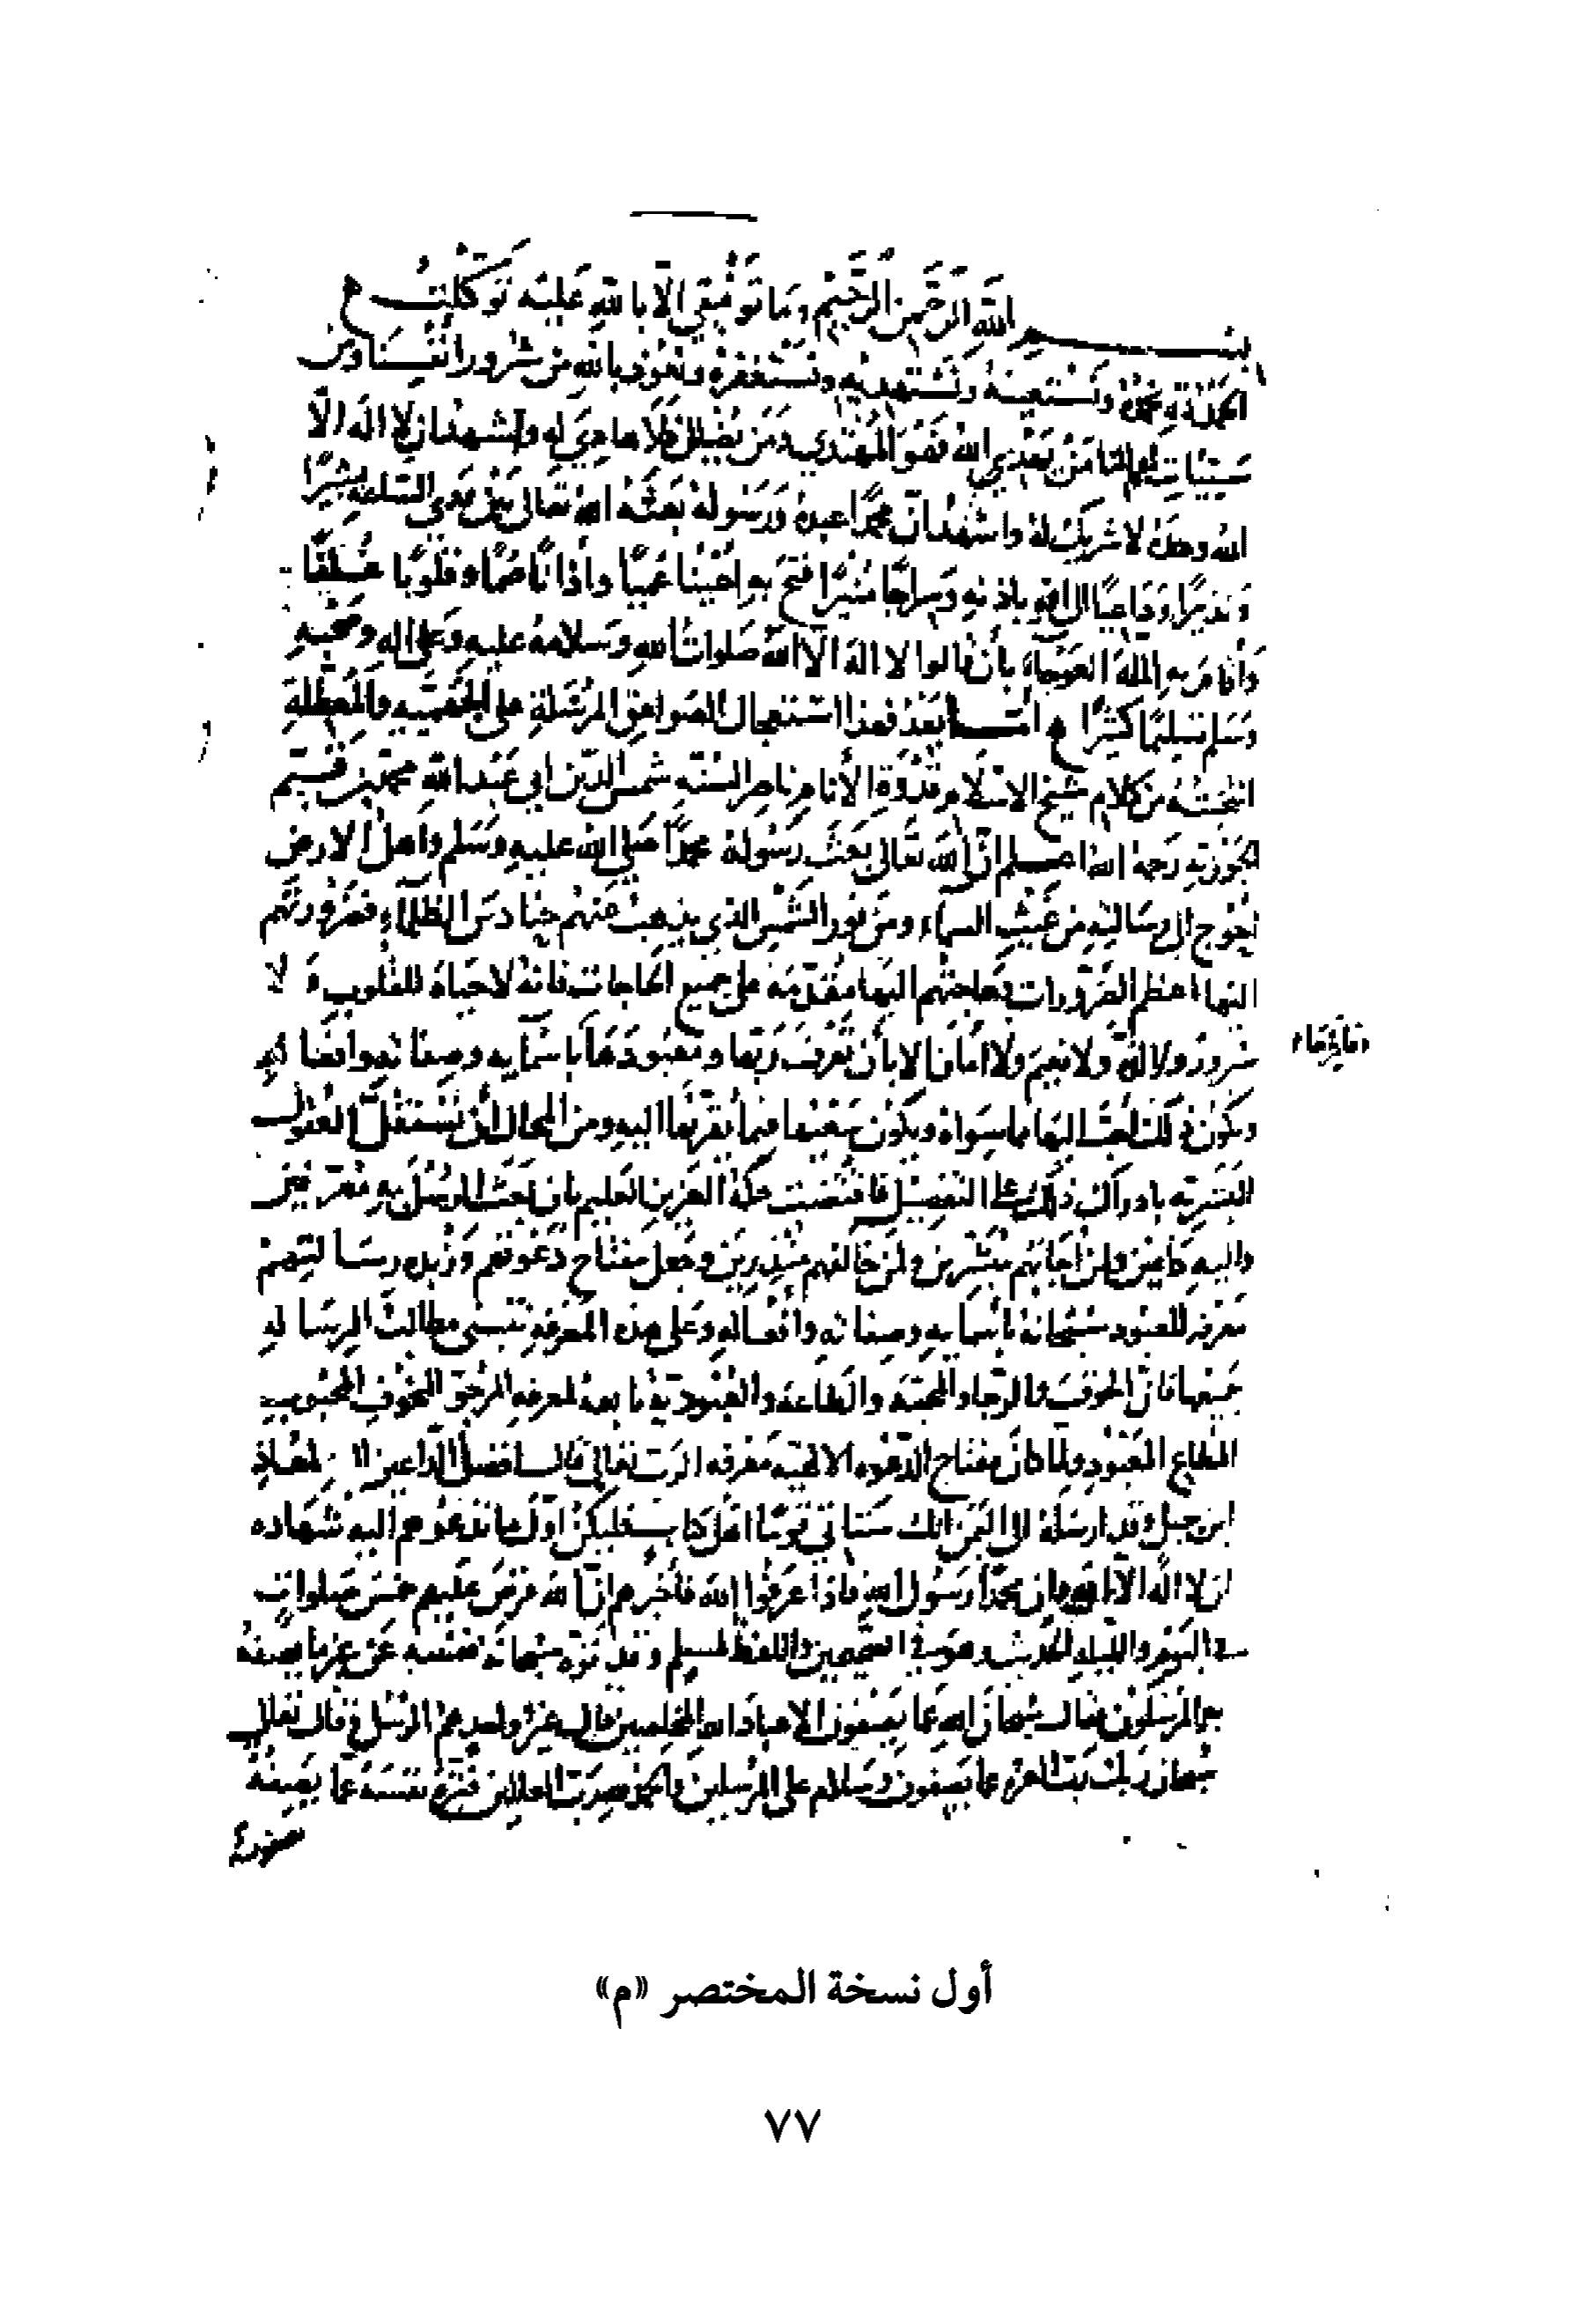 بسم الله الرحمن الرحيم وما توفيقي الا بالله عليه توكلت
الحمد لله نحمده ونستعينه ونستهديه ونستغفره ونعوذ بالله من شرور انفسنا ومن
سيئات اعمالنا من يهدي الله فهو المهتدي ومن يضلل فلا هادي له واشهد ان لا اله الا
الله وحده لا شريك له واشهد ان محمدا عبده ورسوله بعثه الله تعالى بين يدي الساعة بشيرا
ونذيرا وداعيا الى الله باذنه وسراجا منيرا فتح به اعينا عميا واذانا صما وقلوبا غلفا
وأقام به الملة العوجاء بأن قالوا لا اله الا الله صلوات الله وسلامه عليه وعلى اله وصحبه
وسلم تسليما كثيرا امـــا بعد فهذا استعجال الصواعق المرسلة على الجهمية والمعطلة
انتخبته من كلام شيخ الاسلام وقدوة الأنام ناصر السنة شمس الدين ابي عبد الله محمد بن قيم
الجوزية رحمه الله اعــلم ان الله تعالى بعث رسوله محمدا صلى الله عليه وسلم واهل الارض
احوج الى رسالته من غيث السماء ومن نور الشمس الذي يذهب عنهم حنادس الظلماء فضرورتهم
اليها اعظم الضرورات وحاجتهم اليها مقدمة على جميع الحاجات فانه لا حياة للقلوب ولا
سرور ولا لذة ولا نعيم ولا امان الا بأن تعرف ربها ومعبودها باسمايه وصفاته وافعاله
وفاطرها
ويكون ذلك احب اليها مما سواه ويكون سعيها فيما يقربها اليه ومن المحال أن تستقل العقول
البشرية بادراك ذلك على التفصيل فاقتضت حكمة العزيز العليم بان بعث الرسل به معرفين
واليه داعين ولمن اجابهم مبشرين ولمن خالفهم منذرين وجعل مفتاح دعوتهم وزبدة رسالتهم
معرفة المعبود سبحانه بأسمايه وصفاته وافعاله وعلى هذه المعرفة تنبني مطالب الرسالة
جميعها فان الخوف والرجا والمحبة والطاعة والعبودية تابعة لمعرفة المرجو المخوف المحبوب
المطاع المعبود ولما كان مفتاح الدعوة الالهية معرفة الرب تعالى قال افضل الداعين لمعاذ
ابن جبل وقد ارسله الى اليمن انك ستاتي قوما اهل كتاب فليكن اول ما تدعوهم اليه شهادة
ان لا اله الا الله وان محمدا رسول الله فاذا عرفوا الله فاخبرهم ان الله فرض عليهم خمس صلوات
في اليوم والليلة الحديث وهو في الصحيحين واللفظ لمسلم وقد نزه سبحانه نفسه عن غير ما يصفه
به المرسلون فقال سبحان الله عما يصفون الا عباد الله المخلصين قال غير واحد هم الرسل وقال تعالى
سبحان ربك رب العزة عما يصفون وسلام على المرسلين والحمد لله رب العالمين فنزه نفسه عما يصفه
أول نسخة المختصر «م»
٧٧